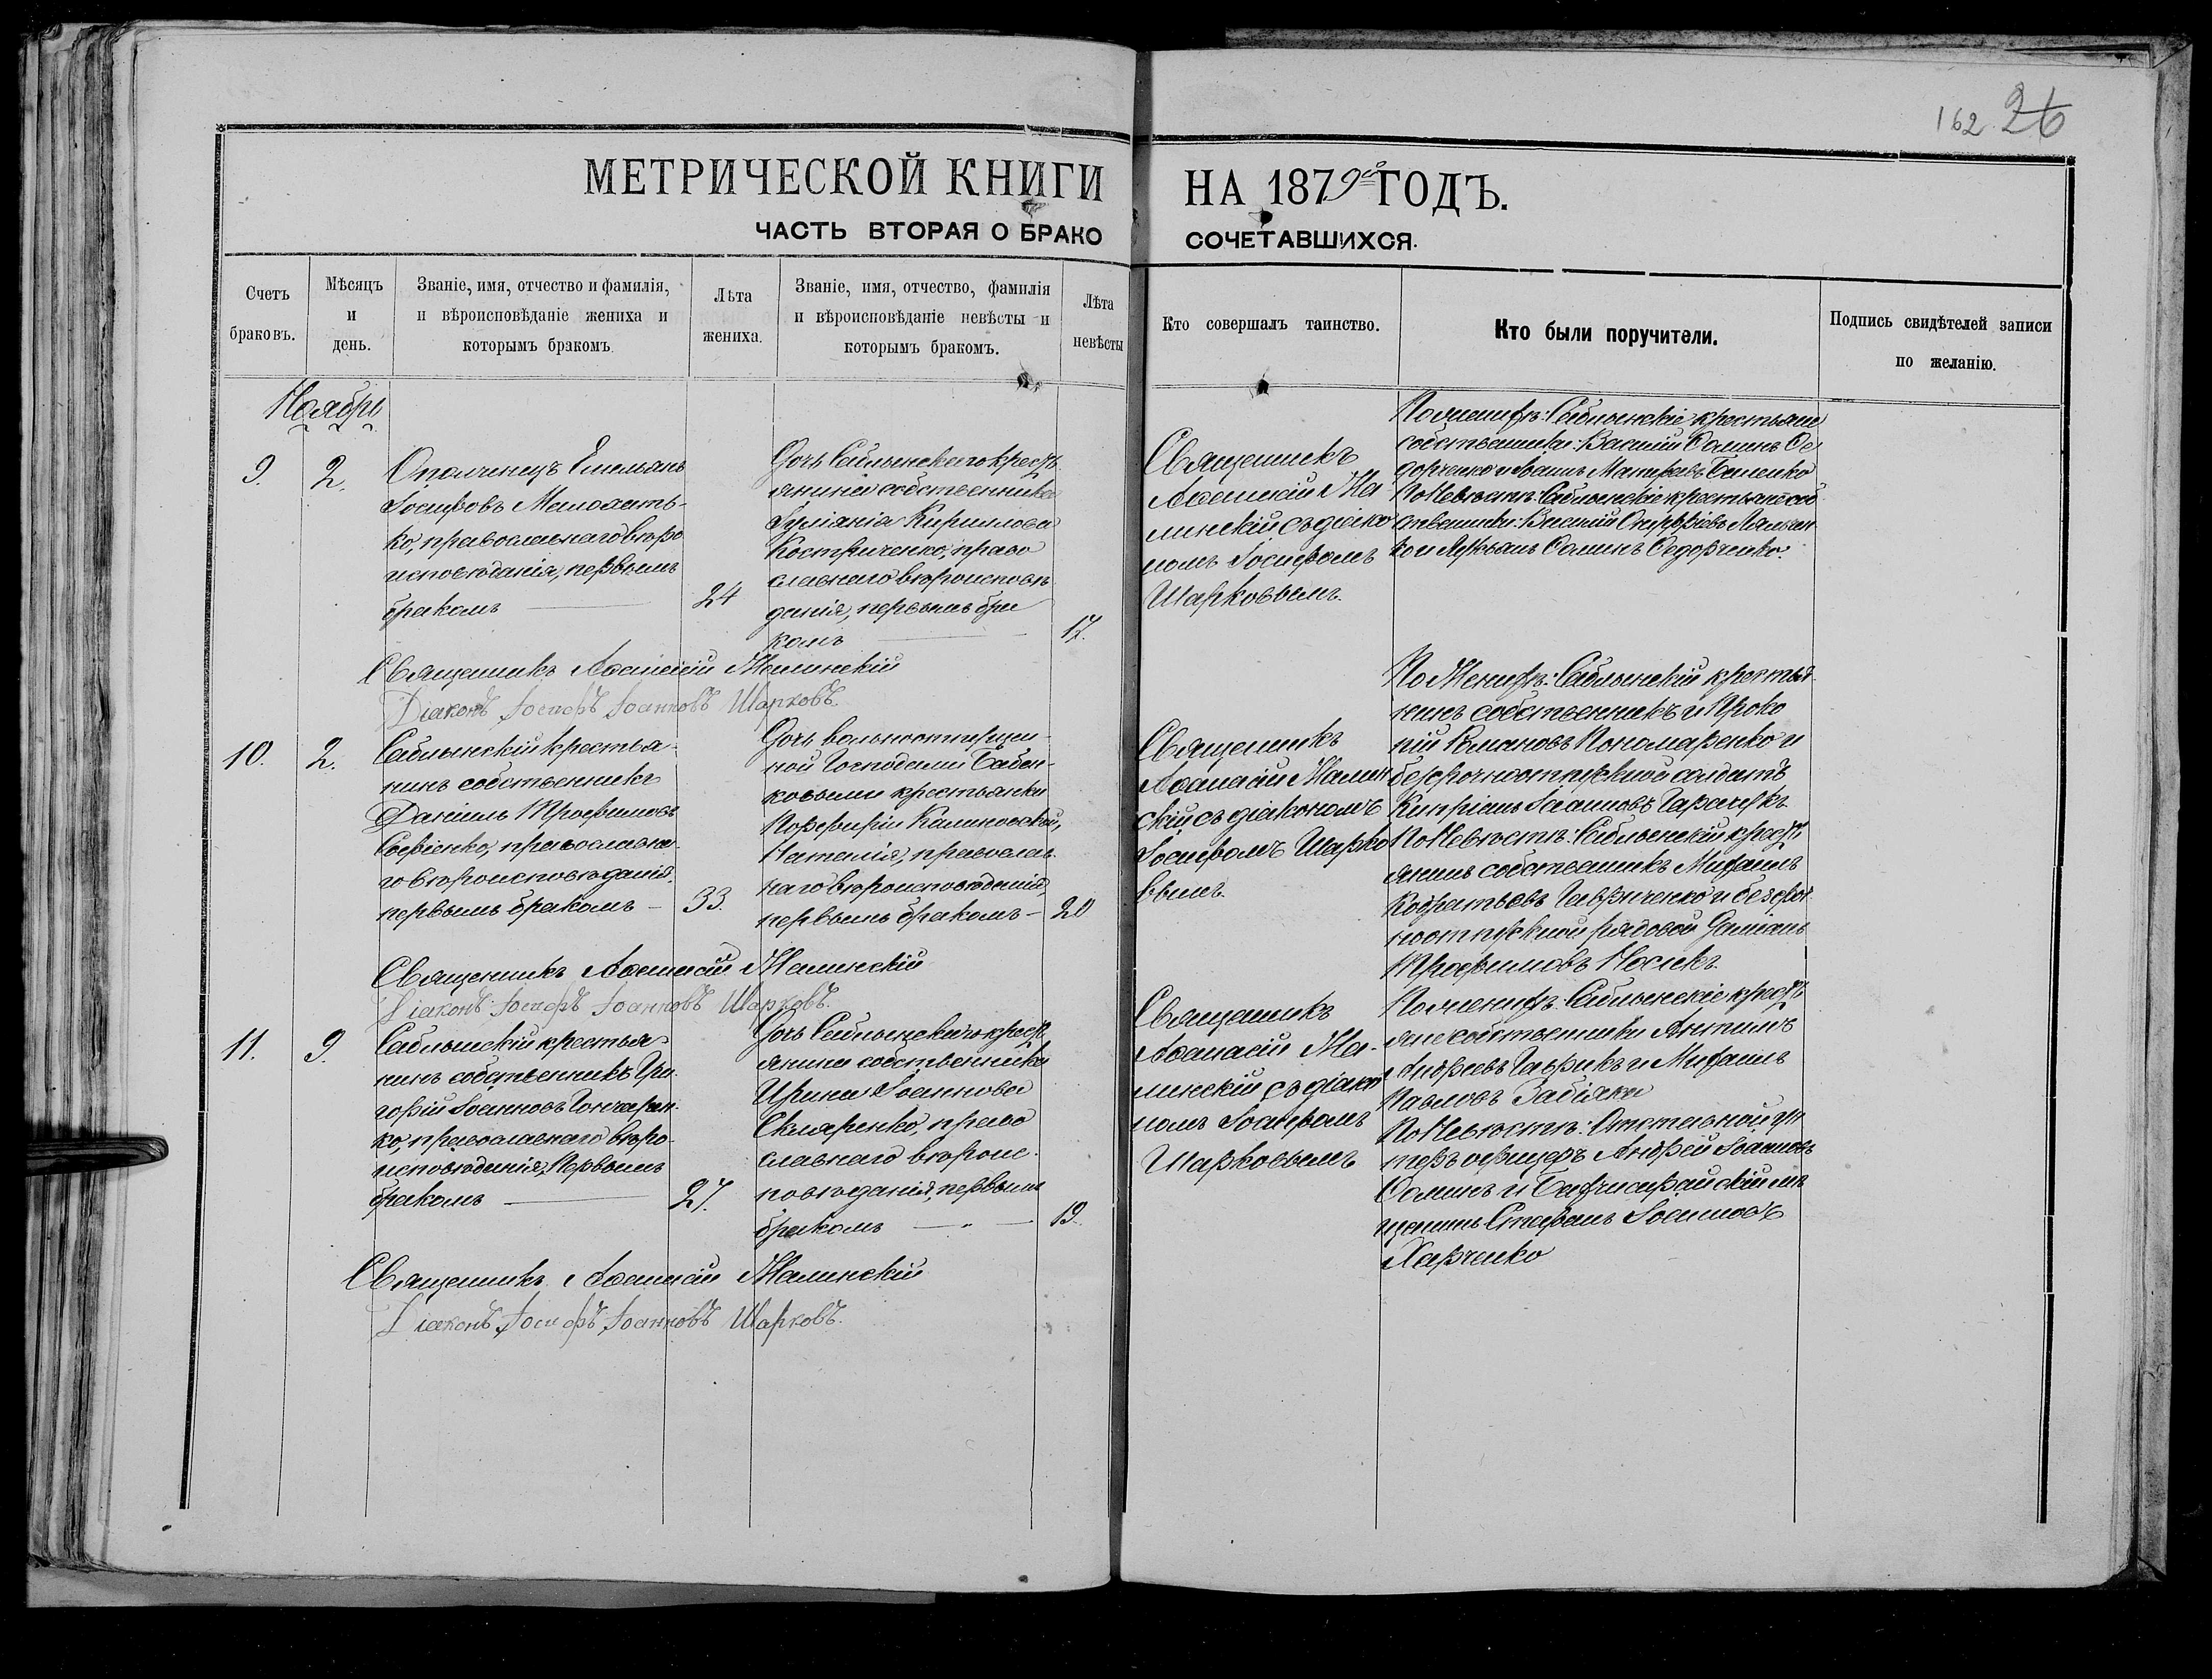 162. 26
МЕТРИЧЕСКОЙ КНИГИ НА 1879й ГОДЪ.
ЧАСТЬ ВТОРАЯ О БРАКО СОЧЕТАВШИХСЯ.
Счетъ
браковъ.
Мѣсяцъ
и
день.
Званіе, имя, отчество и фамилія,
и вѣроисповѣданіе жениха и
которымъ бракомъ.
Лѣта
жениха.
Званіе, имя, отчество, фамилія
и вѣроисповѣданіе невѣсты и
которымъ бракомъ.
Лѣта
невѣсты
Кто совершалъ таинство.
Кто были поручители.
Подпись свидѣтелей записи
по желанію.
Ноябрь
9.
2.
Ополченецъ Емельянъ
Іосифовъ Малохать-
ко, православнаго вѣро
исповѣданія, первымъ
бракомъ
24
Дочь Саблынскаго крест
янина собственника
Іуліанія Кирилова
Костриченко, право
славнаго вѣроисповѣ
данія, первымъ бра
комъ
17.
Священникъ
Аѳанасій Жа
линскій съ діако
номъ Іосифомъ
Шарковымъ.
По женихѣ: Саблынскіе крестьяне
собственники: Василій Ѳоминъ Ѳе
дорченко и Іоаннъ Матфеевъ
По Невѣстѣ: Саблынскіе крестьяне соб
ственники: Василій Онуфріевъ
ко и Ѳоминъ Ѳедорченко.
Священникъ Аѳанасій Жалинскій
Діаконъ Іосифъ Іоанновъ Шарковъ.
10.
2.
Саблынскій крестья-
нинъ собственникъ
Даніилъ Трофимовъ
Софіенко, православна-
го вѣроисповѣданія,
первымъ бракомъ –
33.
Дочь вольноотпущен-
ной Господами Бабен-
ковыми крестьянки
Порфиріи Калиновской,
Наталія, православ-
наго вѣроисповѣданія,
первымъ бракомъ –
20
Священникъ
Аѳанасій Жалин
скій съ діакономъ
Іосифомъ Шарко
вымъ.
По Женихѣ: Саблынскій крестья-
нинъ собственникъ и Проко
пій Романовъ Пономаренко и
безсрочноотпускной солдатъ
Кипріанъ Іоанновъ
По Невѣстѣ: Саблынскій крест
янинъ собственникъ Михаилъ
Кодратьевъ Гавриченко и безсроч
ноотпускной рядовой Даміанъ
Трофимовъ Носикъ.
Священникъ Аѳанасій Жалинскій
Діаконъ Іосифъ Іоанновъ Шарковъ.
11.
9.
Саблынскій крестья-
нинъ собственникъ Гри
горій Іоанновъ Гончарен-
ко, православнаго вѣро-
исповѣданія, Первымъ
бракомъ
27.
Дочь Саблынскаго крест
янина собственника
Ирина Іоаннова
Скляренко, право
славнаго вѣроис-
повѣданія, первымъ
бракомъ
19.
Священникъ
Аѳанасій Жа-
линскій съ діако
номъ Іосифомъ
Шарковымъ
По женихѣ: Саблынскіе крест
яне собственники Антипъ
Андреевъ Гаврикъ и Михаилъ
Павловъ Забіяки
По Невѣстѣ: Отставной ун
теръ офицеръ Андрей Іоанновъ
Ѳоминъ и Бахчисарайскій мѣ
щанинъ Стефанъ Іоанновъ
Харченко
Священникъ Аѳанасій Жалинскій
Діаконъ Іосифъ Іоанновъ Шарковъ.